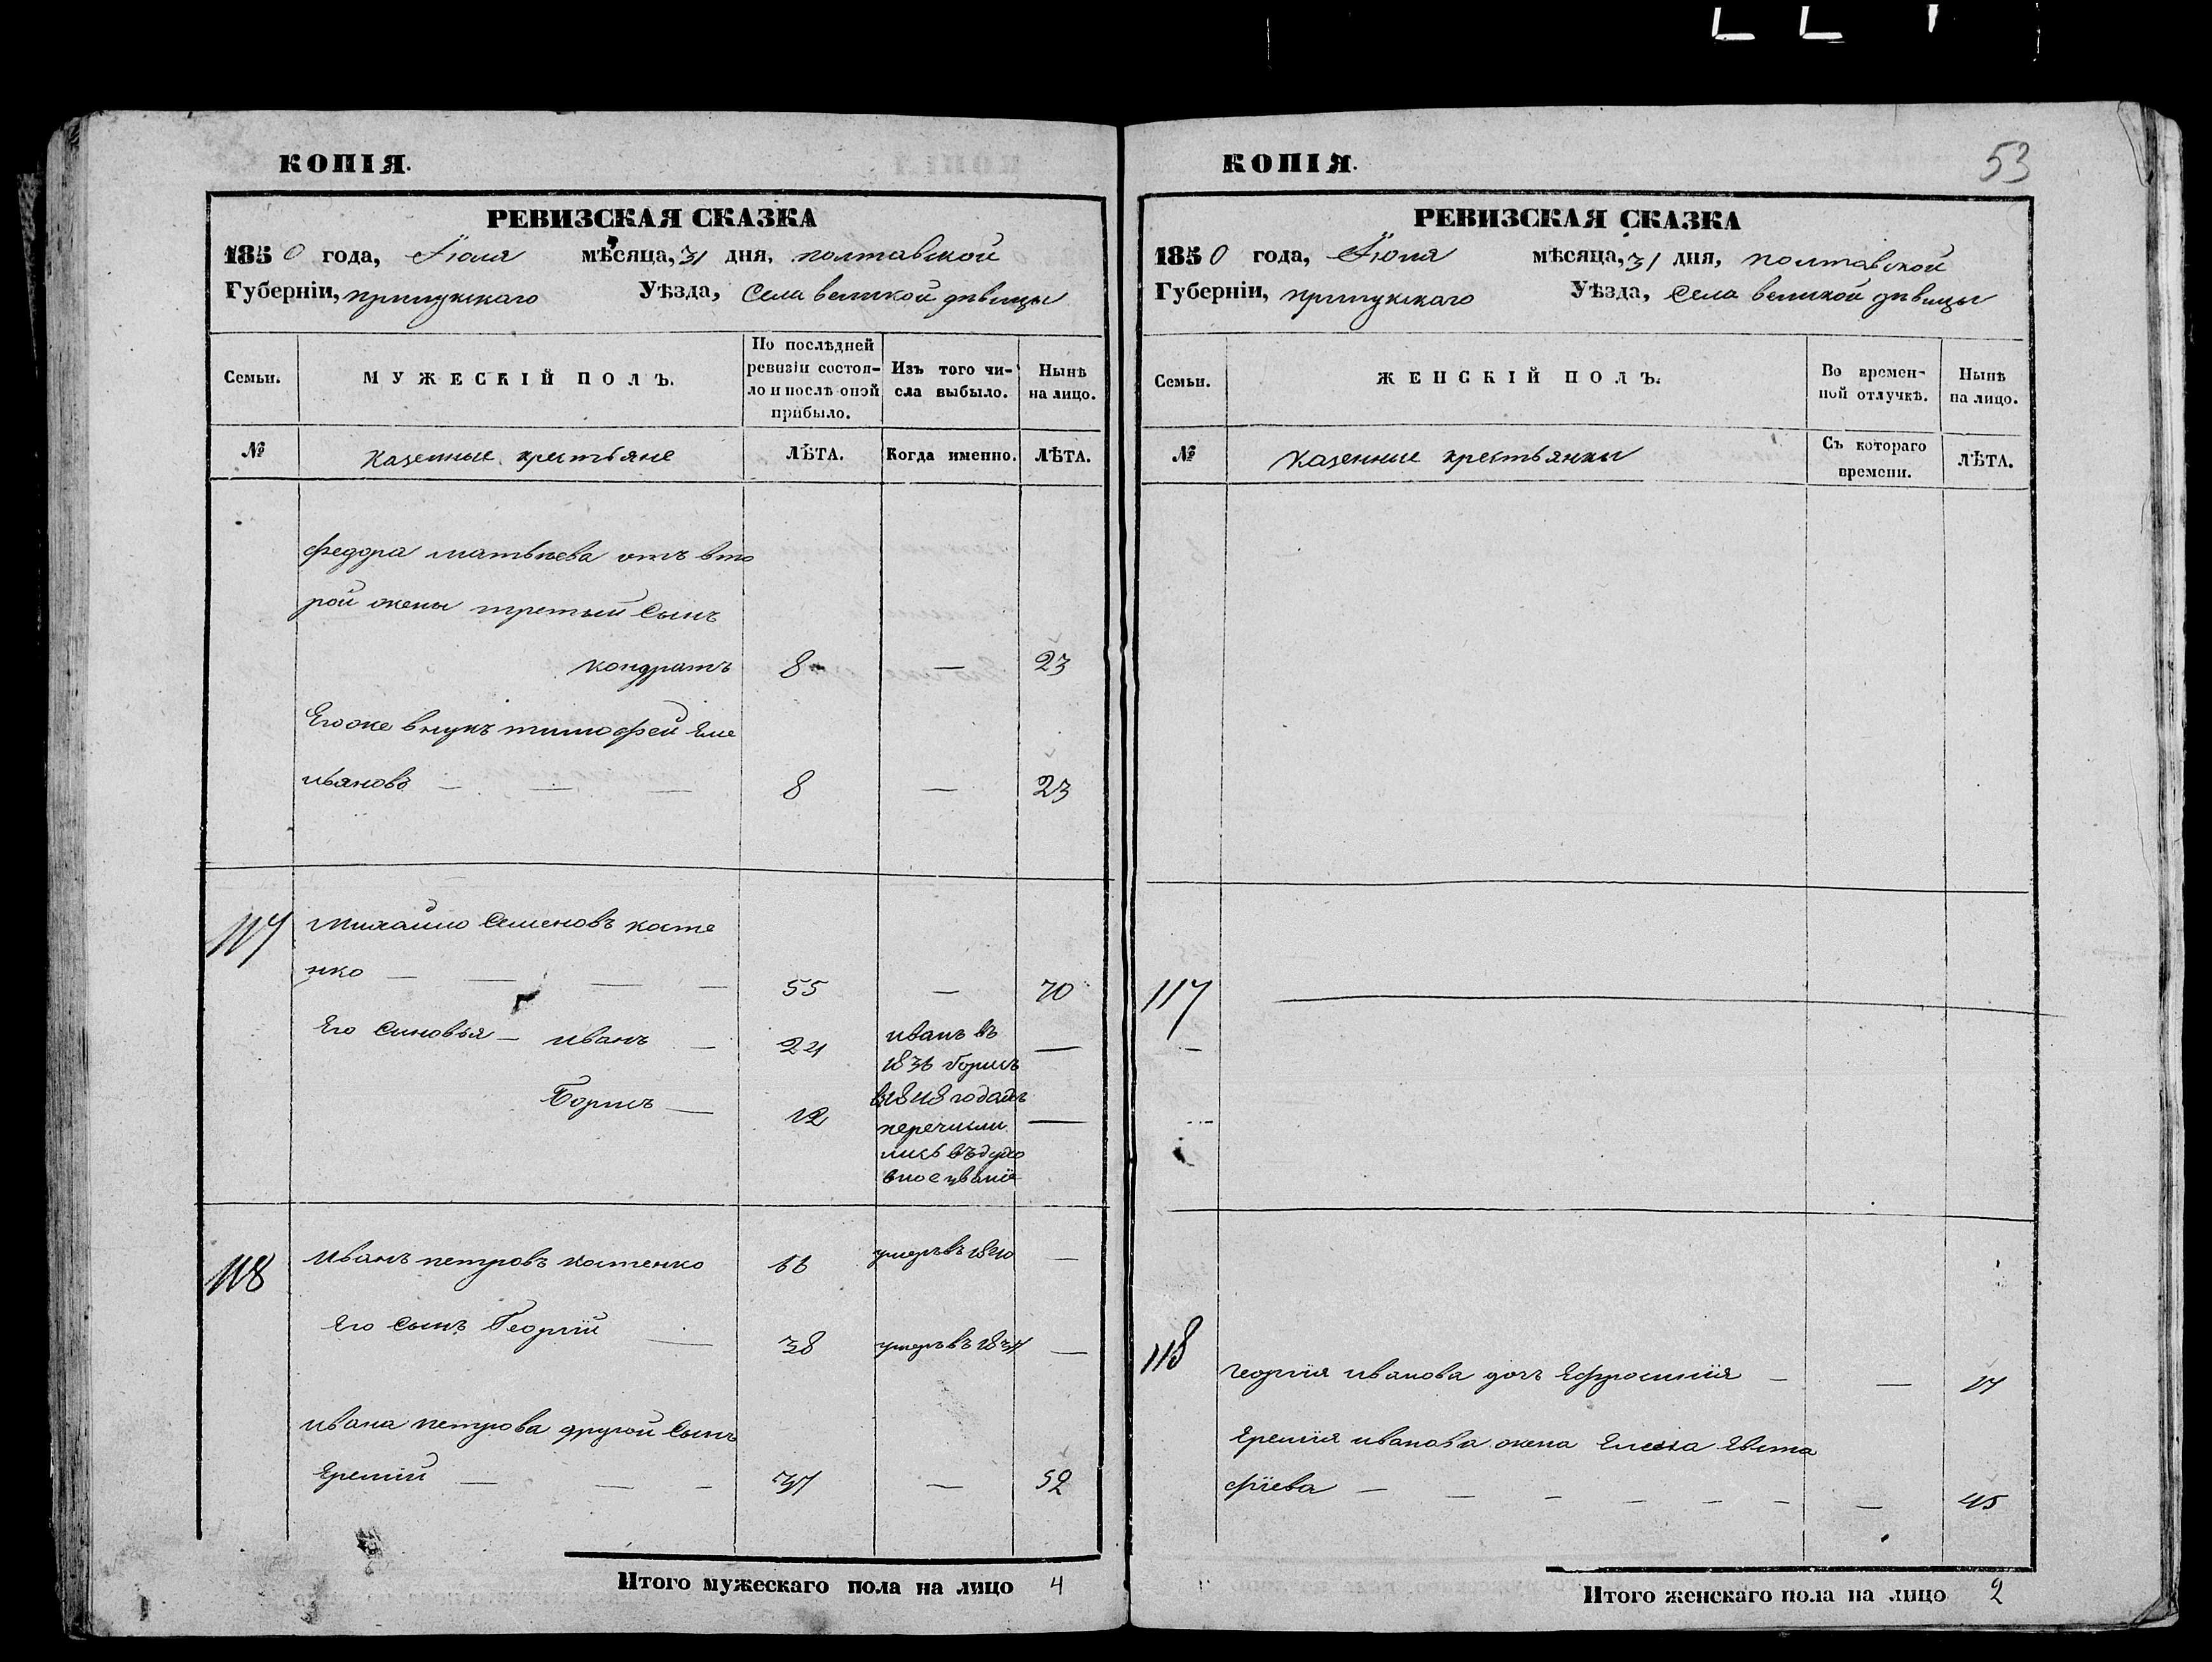 КОПІЯ.
РЕВИЗСКАЯ СКАЗКА
1850 года, Іюля мѣсяца, 31 дня, полтавской
Губерніи, прилукскаго Уѣзда, Села великой дѣвицы
Семьи.
МУЖЕСКІЙ ПОЛЪ.
По послѣдней
ревизіи состоя-
ло и послѣ оной
прибыло.
Изъ того чи-
сла выбыло.
Нынѣ
на лицо.
№
Казенные крестьяне
ЛѢТА.
Когда именно.
ЛѢТА.
федора матвѣева отъ вто
рой жены третий Сынъ
кондратъ 8 — 23
Егоже внукъ тимофей Еме
льяновъ — — — 8 — 23
117 Михайло Семеновъ косте
нко — — — — 55 — 70
Его Синовья — иванъ — 21 иванъ въ —
1836 борисъ
Борисъ — 12 в 1848 годахъ —
перечисли
лись въ духо
вное званіе
118 Иванъ петровъ костенко 66 умеръ въ 1840 —
Его Сынъ Георгій — 38 умеръ въ 1837 —
ивана петрова другой Сынъ
Еремій — — — 37 — 52
Итого мужескаго пола на лицо 4
53
КОПІЯ.
РЕВИЗСКАЯ СКАЗКА
1850 года, Іюля мѣсяца, 31 дня, полтавской
Губерніи, прилукскаго Уѣзда, Села великой дѣвицы
Семьи.
ЖЕНСКІЙ ПОЛЪ.
Во времен-
ной отлучкѣ.
Нынѣ
на лицо.
№
Казенные крестьянки
Съ котораго
времени.
ЛѢТА.
117 —
118
георгія иванова дочъ Ефросинія — — 17
Еремія иванова жена Елена Евста
фіева — — — — — — — 45
Итого женскаго пола на лицо 2